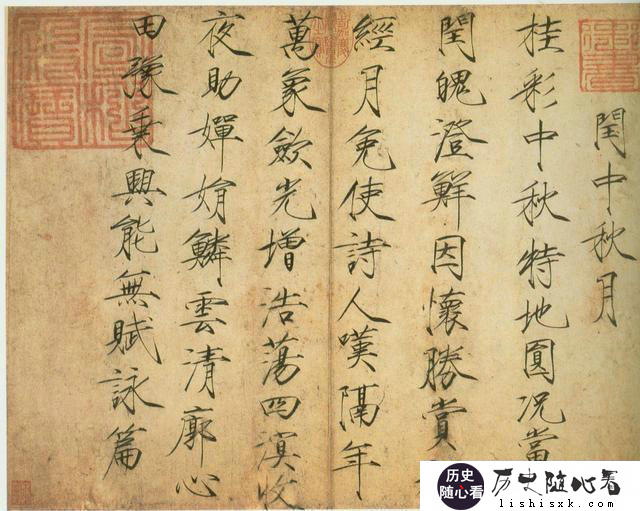 閏中秋月
桂彩中秋特地圓況當
閏魄澄鮮因懷勝賞
經月免使詩人嘆隔年
萬象歛光增浩蕩四溟收
夜助嬋娟鱗雲清廓心
田豫乘興能無賦詠篇
历史
随心看
历史随心看
lishisxk.com